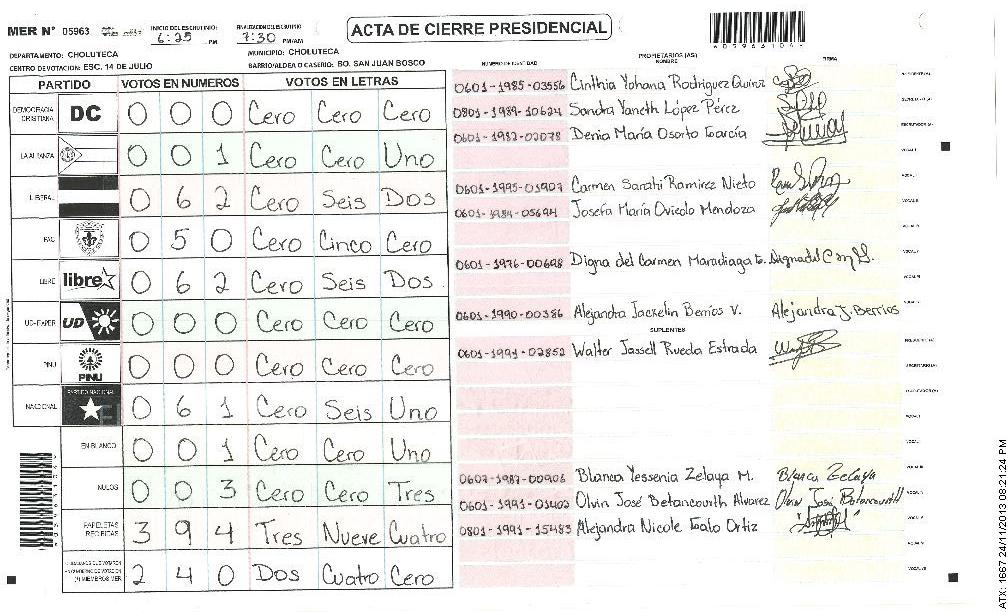 MER N° 05963
INICIO DEL ESCRUTINIO: 6:25 PM
FINALIZACION ESCRUTINIO: 7:30 PM/AM
ACTA DE CIERRE PRESIDENCIAL
DEPARTAMENTO: CHOLUTECA
MUNICIPIO: CHOLUTECA
CENTRO DE VOTACION: ESC. 14 DE JULIO
BARRIO/ALDEA O CASERIO: BO. SAN JUAN BOSCO
PARTIDO VOTOS EN NUMEROS VOTOS EN LETRAS
DEMOCRACIA CRISTIANA DC 0 0 0 Cero Cero Cero
LA ALIANZA 0 0 1 Cero Cero Uno
LIBERAL 0 6 2 Cero Seis Dos
PAC 0 5 0 Cero Cinco Cero
LIBRE libre 0 6 2 Cero Seis Dos
UD-FAPER UD 0 0 0 Cero Cero Cero
PINU PINU 0 0 0 Cero Cero Cero
NACIONAL PARTIDO NACIONAL 0 6 1 Cero Seis Uno
EN BLANCO 0 0 1 Cero Cero Uno
NULOS 0 0 3 Cero Cero Tres
PAPELETAS RECIBIDAS 3 9 4 Tres Nueve Cuatro
MIEMBROS MER 2 4 0 Dos Cuatro Cero
NUMERO DE IDENTIDAD PROPIETARIOS (AS) NOMBRE FIRMA
0601-1985-03556 Cinthia Yohana Rodriguez Quiroz
0801-1989-10624 Sandra Yaneth López Pérez
0601-1982-02078 Denia María Osorto García
0601-1995-01907 Carmen Sarahi Ramirez Nieto
0601-1984-05694 Josefa María Oviedo Mendoza
0601-1976-00698 Digna del Carmen Maradiaga G.
0601-1990-00386 Alejandra Jackelin Berrios V. Alejandra J. Berrios
SUPLENTES
0601-1991-02852 Walter Jassell Rueda Estrada
0607-1987-00908 Blanca Yessenia Zelaya M. Blanca Zelaya
0601-1991-03402 Olvin José Betancourth Alvarez Olvin José Betancourth
0801-1991-15483 Alejandra Nicole Galo Ortiz
ATX: 1667 24/11/2013 08:21:24 PM